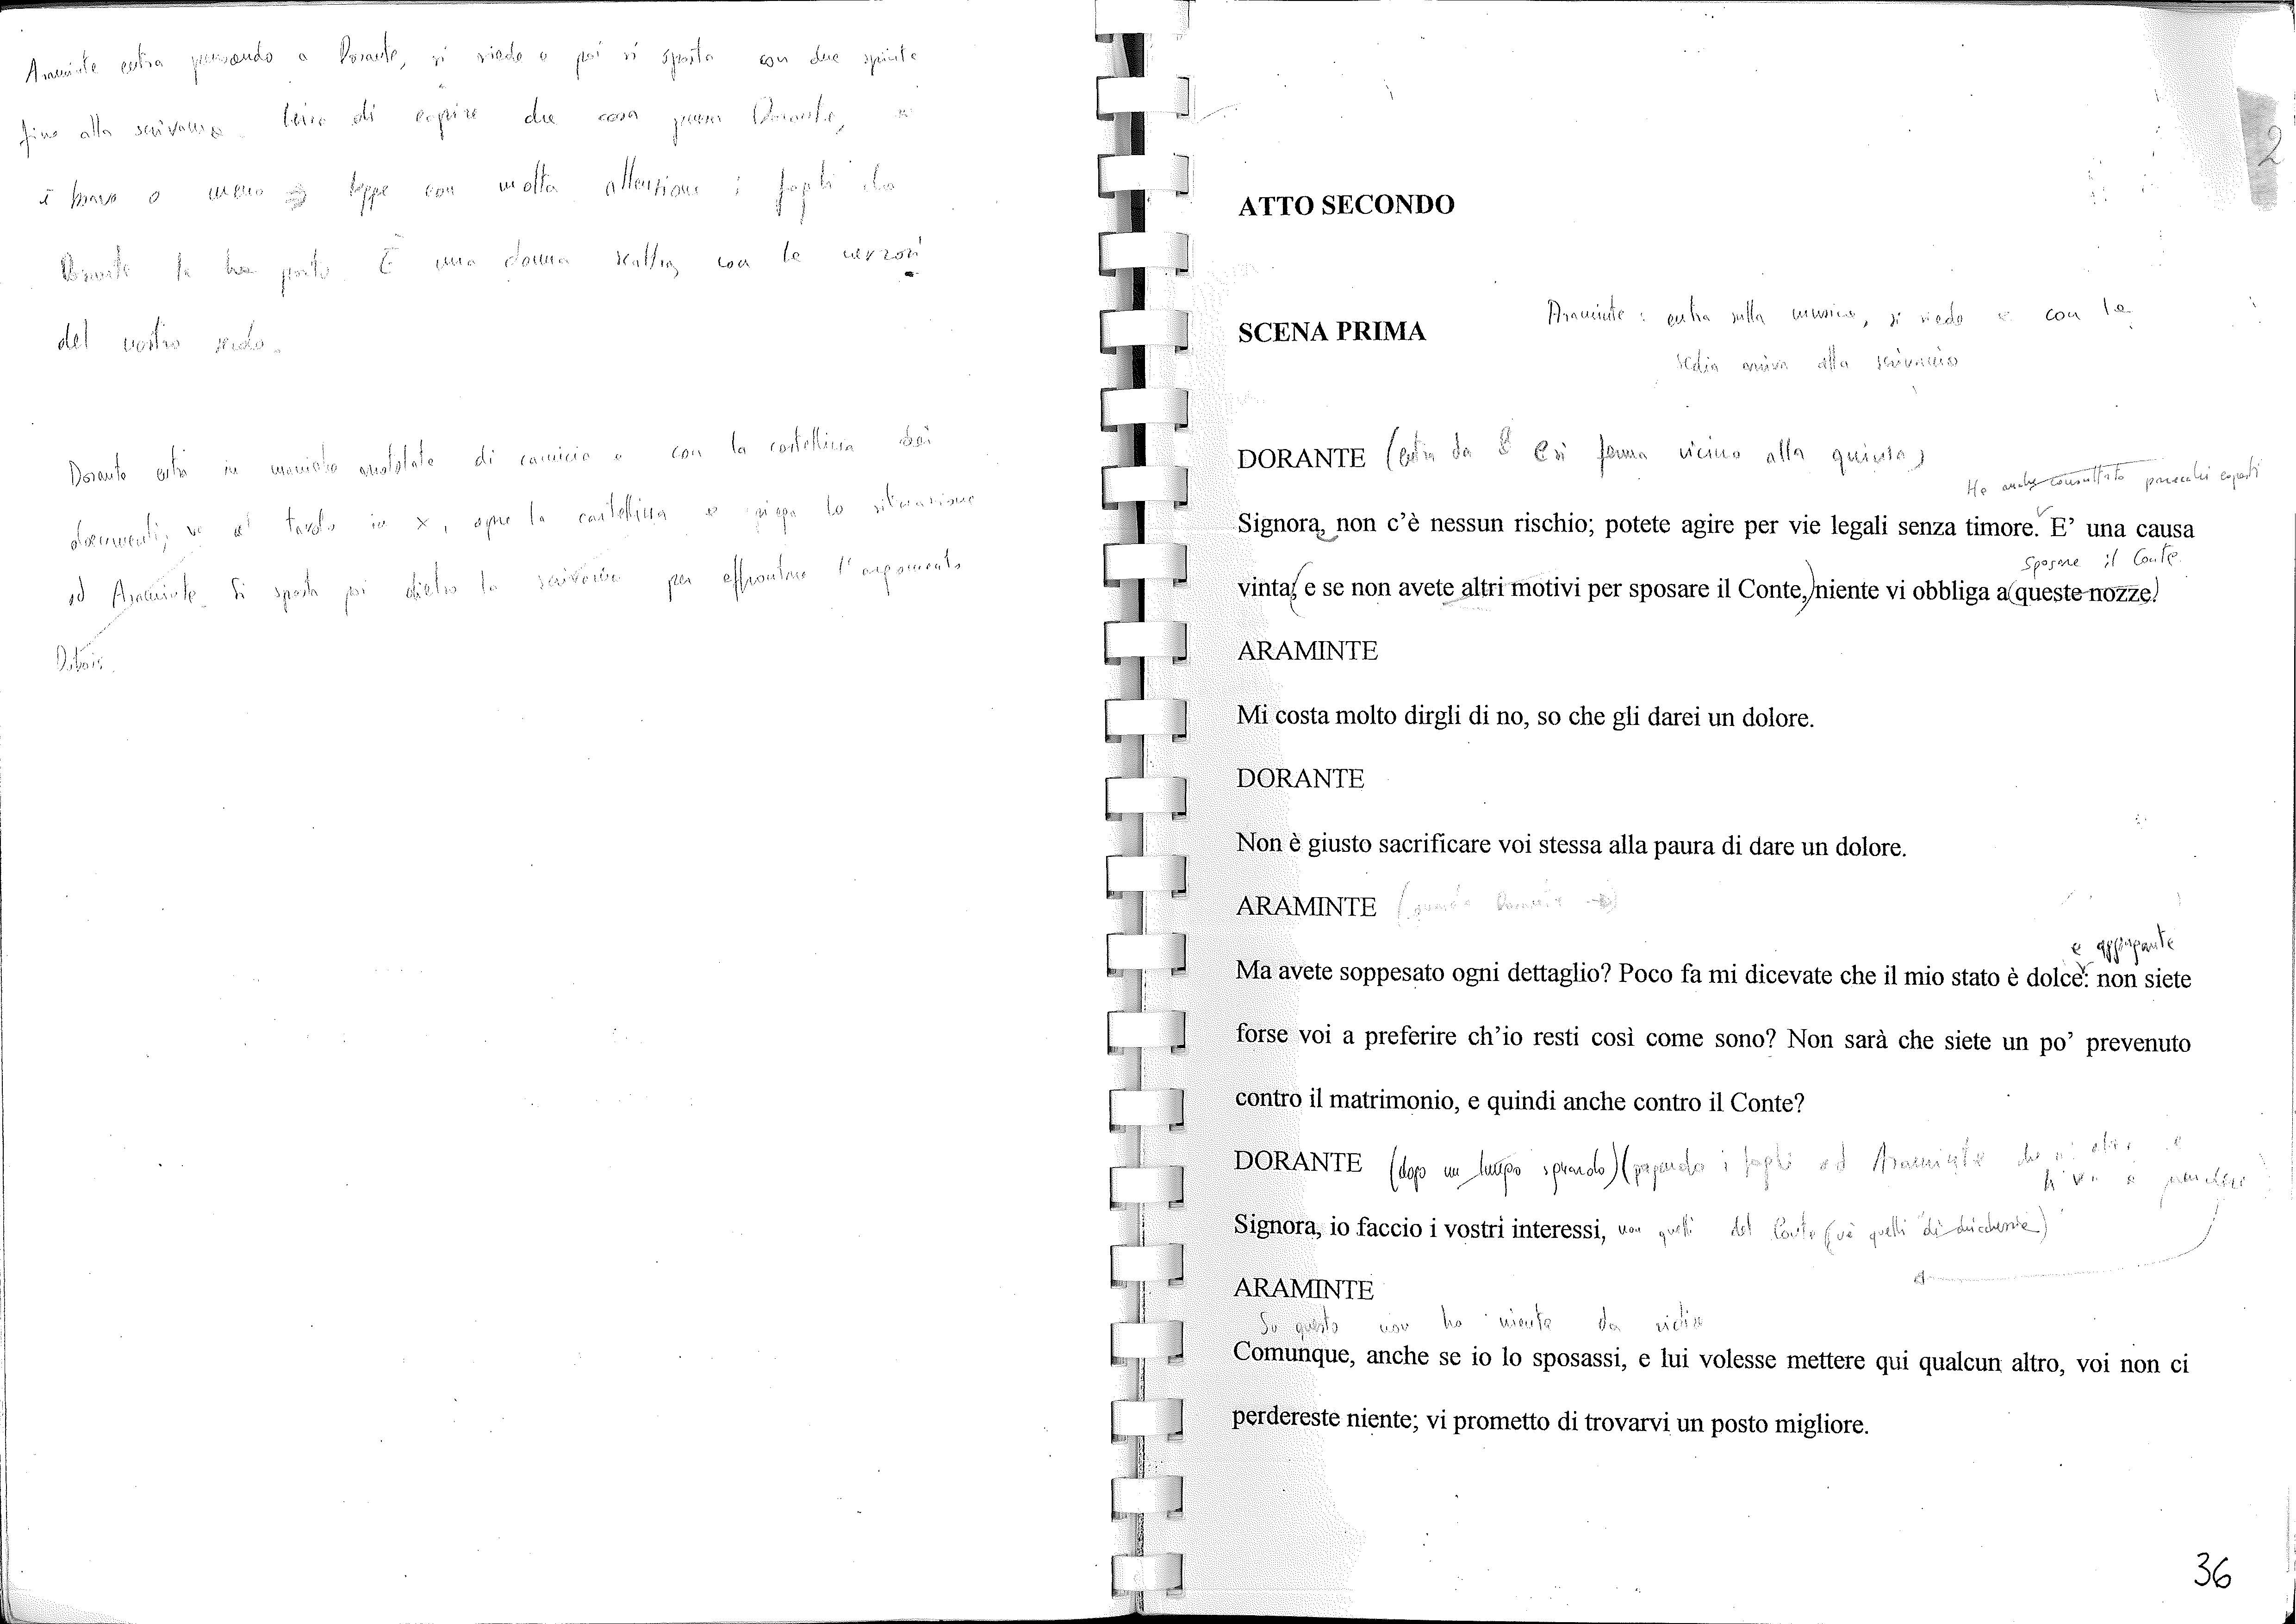 Araminte entra pensando a Dorante, si siede e poi si sposta con due spinte
fino alla scrivania. di capire che cosa pensa Dorante, se
è bravo o meno legge con molta attenzione i fogli che
Dorante le ha portato. È una donna scaltra, con le
del vostro
Dorante entra in maniche arrotolate di camicia e con la cartellina dei
documenti; va al tavolo in x, apre la cartellina e spiega la situazione
ad Araminte. Si sposta poi dietro la scrivania per affrontare l'argomento
Dubois.
2
ATTO SECONDO
SCENA PRIMA
Araminte: entra sulla musica, si siede e con la
sedia arriva alla scrivania
DORANTE (entra da e si ferma vicino alla quinta)
Ho anche consultato parecchi esperti
Signora, non c'è nessun rischio; potete agire per vie legali senza timore. E' una causa
sposare il Conte.
vinta; e se non avete altri motivi per sposare il Conte, niente vi obbliga a (queste nozze)
ARAMINTE
Mi costa molto dirgli di no, so che gli darei un dolore.
DORANTE
Non è giusto sacrificare voi stessa alla paura di dare un dolore.
ARAMINTE
e appagante
Ma avete soppesato ogni dettaglio? Poco fa mi dicevate che il mio stato è dolce: non siete
forse voi a preferire ch'io resti così come sono? Non sarà che siete un po' prevenuto
contro il matrimonio, e quindi anche contro il Conte?
DORANTE (dopo un lungo sguardo) ( i fogli ad Araminte che si alza e
Signora, io faccio i vostri interessi, non quelli del Conte (né quelli di chicchessia)
ARAMINTE
Su questo non ho niente da ridire
Comunque, anche se io lo sposassi, e lui volesse mettere qui qualcun altro, voi non ci
perdereste niente; vi prometto di trovarvi un posto migliore.
36